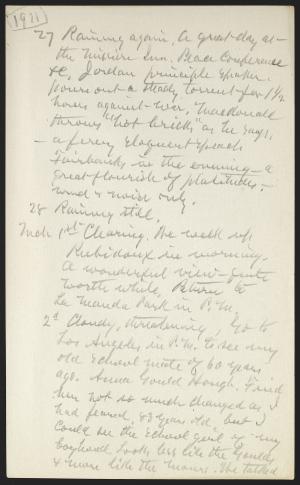 1911
27 Raining again. A great day at
the Mission Inn. Peace Conference
&c, Jordan principle speaker.
Pours out a steady torrent for 1½
hours against war. Macdonald
throws "hot bricks" as he says,
a fiery eloquent speech
Fairbanks in the evening — a
great flourish of platitudes, —
wind & noise only.
28 Raining still.
Mch 1st Clearing. We walk up
Rubidoux in morning,
A wonderful view — quite
worth while, Return to
La Manda Park in P.M.
2d Cloudy, threatening, Go to
Los Angeles in P.M. to see my
old School mate of 60 years
ago. Anna Gould Hough. Find
her not so much changed as I
had feared, 73 years old, but I
could see the School girl of my
boyhood. Looks less like the Goulds
& more like the Mours. We talked